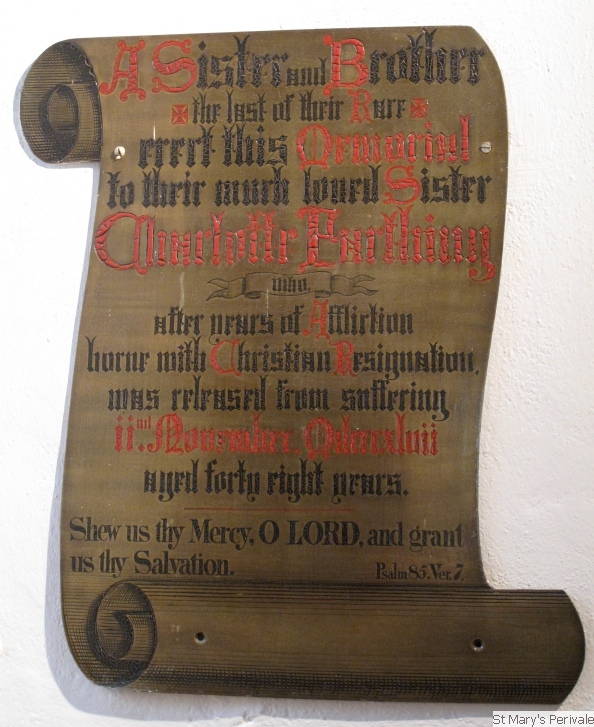 A Sister and Brother
the last of their Race
erect this Memorial
to their much loved Sister
Charlotte Farthing
who,
after years of Affliction
borne with Christian Resignation,
was released from suffering
ii.nd November, Mdcccxlvii
aged forty eight years.
Shew us thy Mercy, O LORD, and grant
us thy Salvation.
Psalm 85. Ver. 7.
St Mary's Perivale